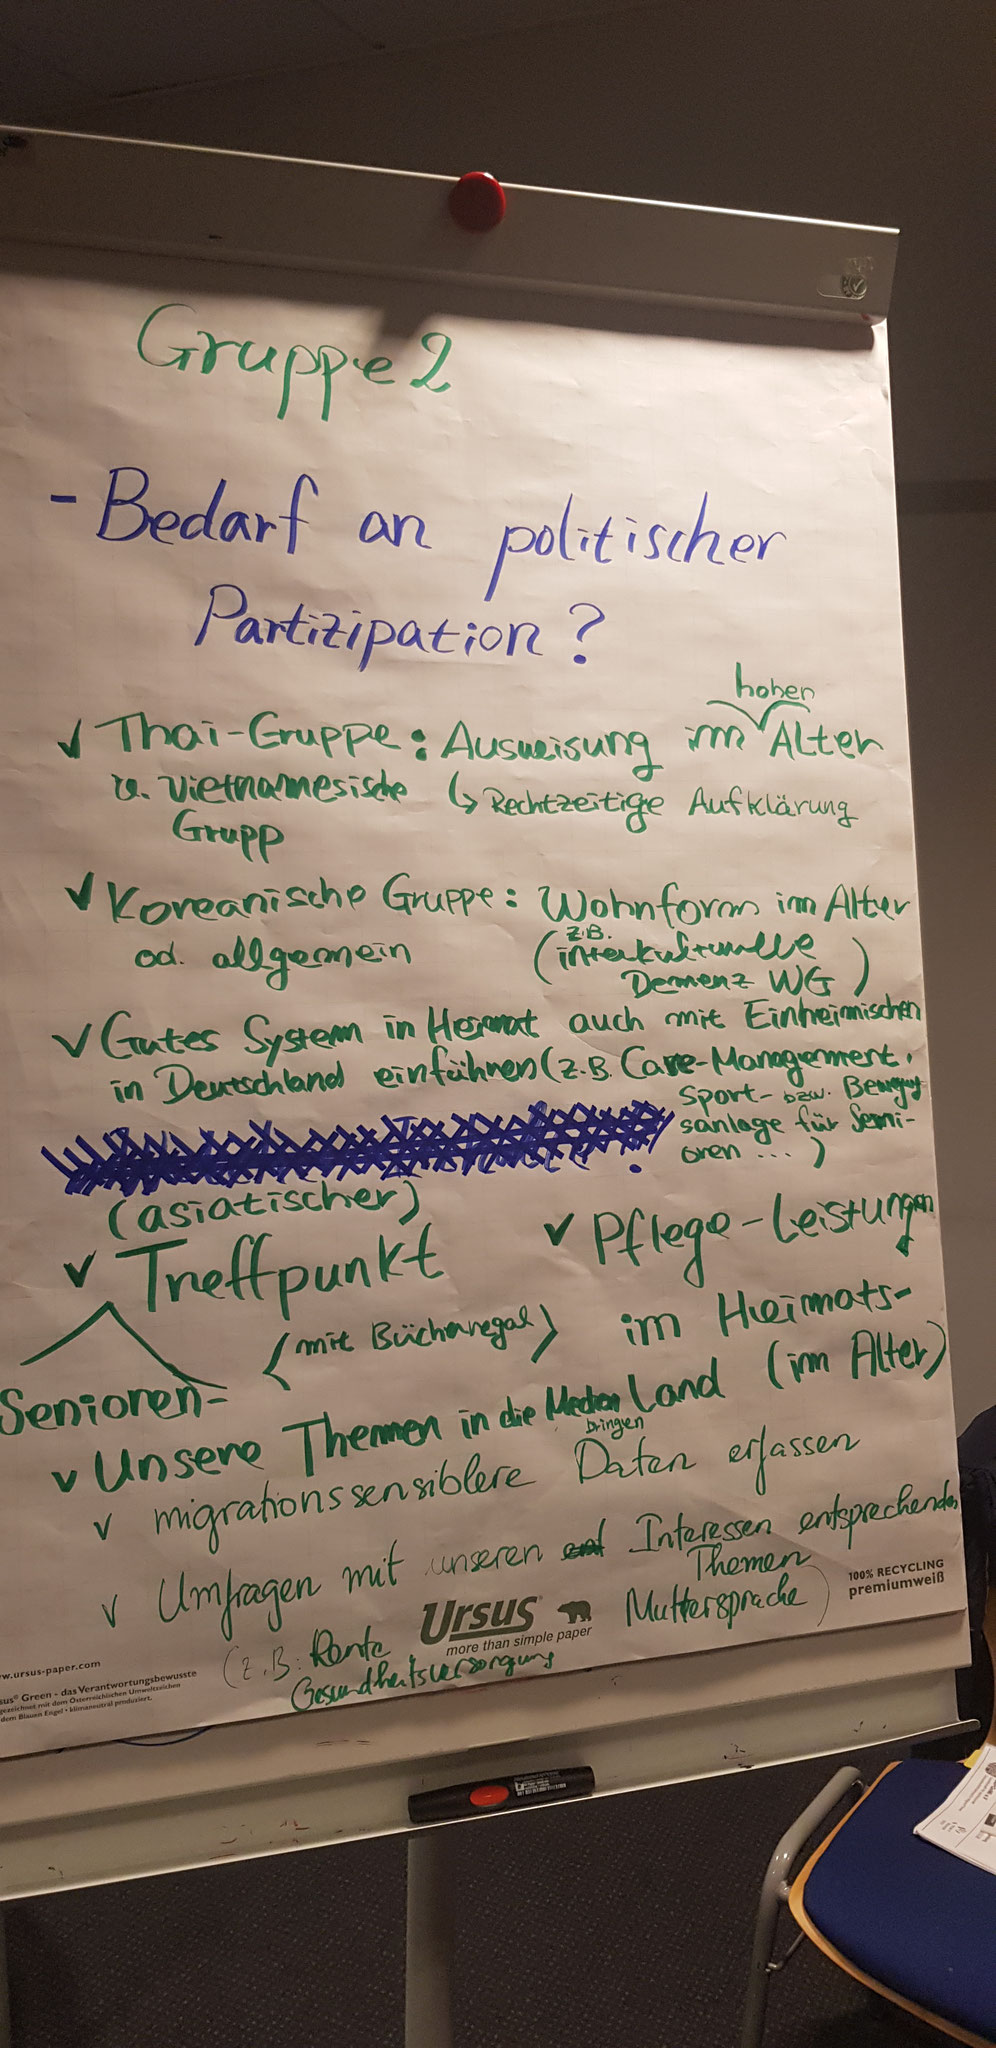 Gruppe 2
- Bedarf an politischer
Partizipation?
hohen
✓ Thai-Gruppe: Ausweisung im Alter
u. vietnamesische ↳ Rechtzeitige Aufklärung
Grupp
✓ Koreanische Gruppe: Wohnform im Alter
od. allgemein (z.B. interkulturelle
Demenz WG)
✓ Gutes System in Heimat auch mit Einheimischen
in Deutschland einführen (z.B. Care-Management,
Sport- bzw. Bewegungs
anlage für Seni-
oren ...)
(asiatischer)
✓ Treffpunkt
(mit Bücherregal)
Senioren-
✓ Pflege-Leistungen
im Heimats-
Land (im Alter)
✓ Unsere Themen in die Medien
bringen
✓ migrationssensiblere Daten erfassen
✓ Umfragen mit unseren Interessen entsprechenden
Themen
(z.B: Rente, Muttersprache)
Gesundheitsversorgung
Ursus
more than simple paper
100% RECYCLING
premiumweiß
w.ursus-paper.com
Green - das Verantwortungsbewusste
gezeichnet mit dem Österreichischen Umweltzeichen
dem Blauen Engel • klimaneutral produziert.